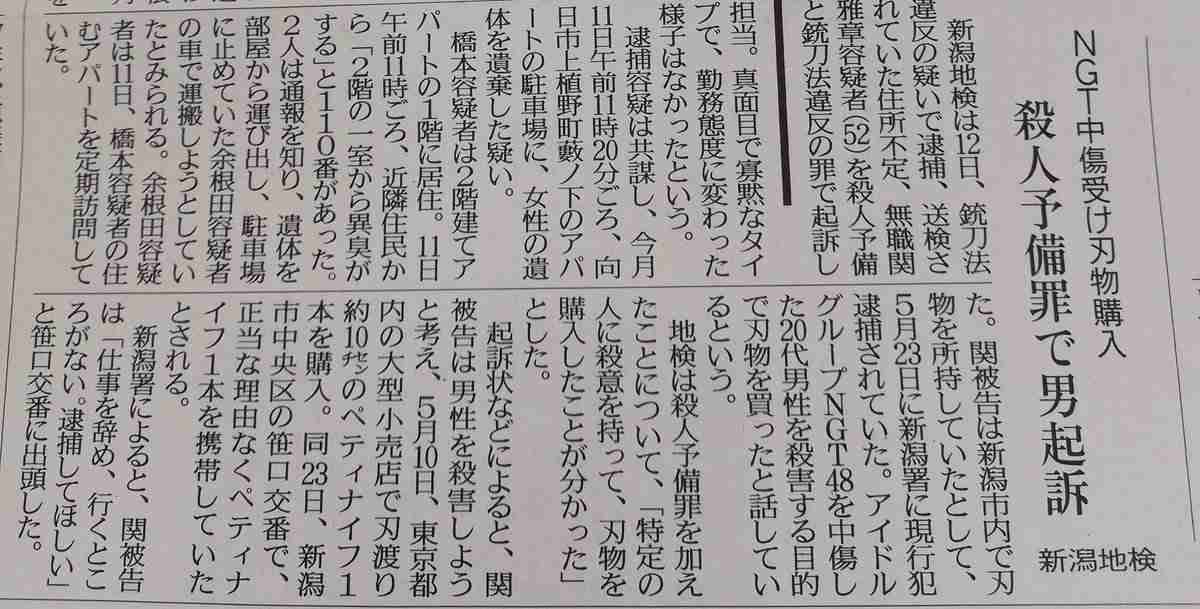 NGT中傷受け刃物購入
殺人予備罪で男起訴
新潟地検
新潟地検は12日、銃刀法
違反の疑いで逮捕、送検さ
れていた住所不定、無職関
雅章容疑者(52)を殺人予備
と銃刀法違反の罪で起訴し
た。関被告は新潟市内で刃
物を所持していたとして、
5月23日に新潟署に現行犯
逮捕されていた。アイドル
グループNGT48を中傷し
た20代男性を殺害する目的
で刃物を買ったと話してい
るという。
地検は殺人予備罪を加え
たことについて、「特定の
人に殺意を持って、刃物を
購入したことが分かった」
とした。
起訴状などによると、関
被告は男性を殺害しよう
と考え、5月10日、東京都
内の大型小売店で刃渡り
約10㌢のペティナイフ1
本を購入。同23日、新潟
市中央区の笹口交番で、
正当な理由なくペティナ
イフ1本を携帯していた
とされる。
新潟署によると、関被告
は「仕事を辞め、行くとこ
ろがない。逮捕してほしい」
と笹口交番に出頭した。
担当。真面目で寡黙なタイ
プで、勤務態度に変わった
様子はなかったという。
逮捕容疑は共謀し、今月
11日午前11時20分ごろ、向
日市上植野町藪ノ下のアパ
ートの駐車場に、女性の遺
体を遺棄した疑い。
橋本容疑者は2階建てア
パートの1階に居住。11日
午前11時ごろ、近隣住民か
ら「2階の一室から異臭が
する」と110番があった。
2人は通報を知り、遺体を
部屋から運び出し、駐車場
に止めていた余根田容疑者
の車で運搬しようとしてい
たとみられる。余根田容疑
者は11日、橋本容疑者の住
むアパートを定期訪問して
いた。